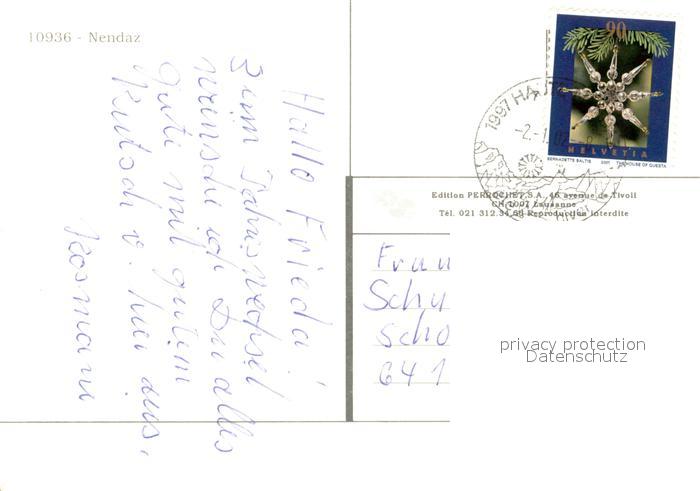 10936 - Nendaz
Hallo Frieda!
Zum Jahreswechsel
wünsche ich Du alles
gute mit gutem
Rutsch v. hier aus,
90
HELVETIA
BERNADETTE BALTIS 2001 THE HOUSE OF QUESTA
1997 HAUTE
-2-1.02-
Edition PERROCHET S.A. 46 avenue de Tivoli
CH-1007 Lausanne
Tél. 021 312.34.69 Reproduction interdite
Frau
Schu
Scho
641
privacy protection
Datenschutz